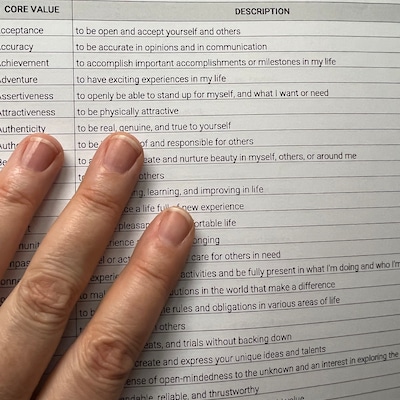 CORE VALUE DESCRIPTION
Acceptance to be open and accept yourself and others
Accuracy to be accurate in opinions and in communication
Achievement to accomplish important accomplishments or milestones in my life
Adventure to have exciting experiences in my life
Assertiveness to openly be able to stand up for myself, and what I want or need
Attractiveness to be physically attractive
Authenticity to be real, genuine, and true to yourself
to be of and responsible for others
to eate and nurture beauty in myself, others, or around me
to others
ing, learning, and improving in life
ce a life full of new experience
pleasa ortable life
erience onging
el or a care for others in need
experie activities and be fully present in what I'm doing and who I'm
to ma butions in the world that make a difference
to be le rules and obligations in various areas of life
others
eats, and trials without backing down
create and express your unique ideas and talents
ense of open-mindedness to the unknown and an interest in exploring the
endable, reliable, and trustworthy
value